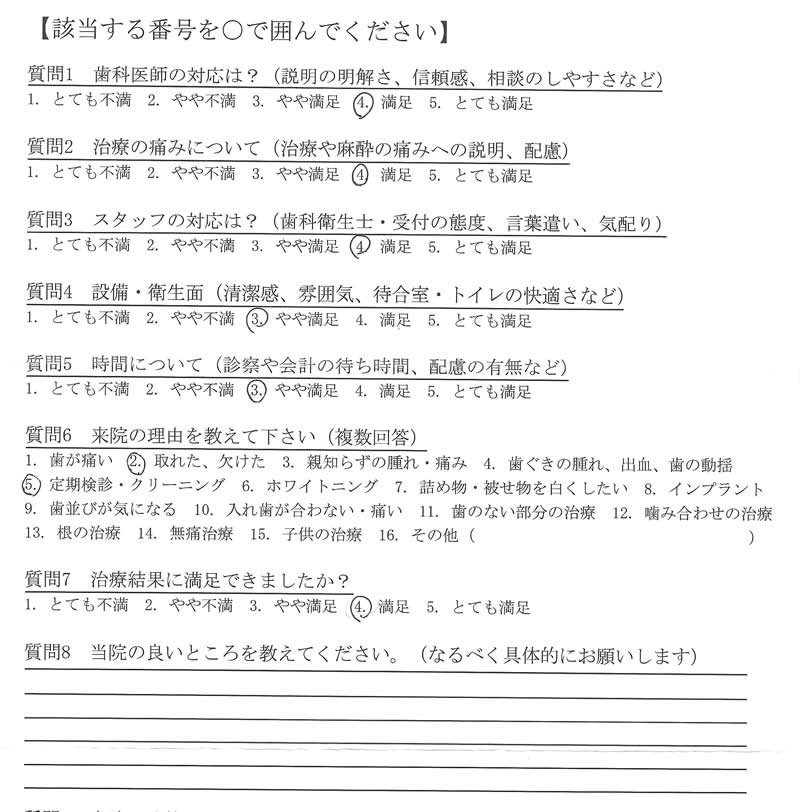 【該当する番号を○で囲んでください】
質問1 歯科医師の対応は？（説明の明解さ、信頼感、相談のしやすさなど）
1. とても不満 2. やや不満 3. やや満足 4. 満足 5. とても満足
質問2 治療の痛みについて（治療や麻酔の痛みへの説明、配慮）
1. とても不満 2. やや不満 3. やや満足 4 満足 5. とても満足
質問3 スタッフの対応は？（歯科衛生士・受付の態度、言葉遣い、気配り）
1. とても不満 2. やや不満 3. やや満足 4 満足 5. とても満足
質問4 設備・衛生面（清潔感、雰囲気、待合室・トイレの快適さなど）
1. とても不満 2. やや不満 3. やや満足 4. 満足 5. とても満足
質問5 時間について（診察や会計の待ち時間、配慮の有無など）
1. とても不満 2. やや不満 3. やや満足 4. 満足 5. とても満足
質問6 来院の理由を教えて下さい（複数回答）
1. 歯が痛い 2. 取れた、欠けた 3. 親知らずの腫れ・痛み 4. 歯ぐきの腫れ、出血、歯の動揺
5. 定期検診・クリーニング 6. ホワイトニング 7. 詰め物・被せ物を白くしたい 8. インプラント
9. 歯並びが気になる 10. 入れ歯が合わない・痛い 11. 歯のない部分の治療 12. 噛み合わせの治療
13. 根の治療 14. 無痛治療 15. 子供の治療 16. その他（ ）
質問7 治療結果に満足できましたか？
1. とても不満 2. やや不満 3. やや満足 4. 満足 5. とても満足
質問8 当院の良いところを教えてください。（なるべく具体的にお願いします）